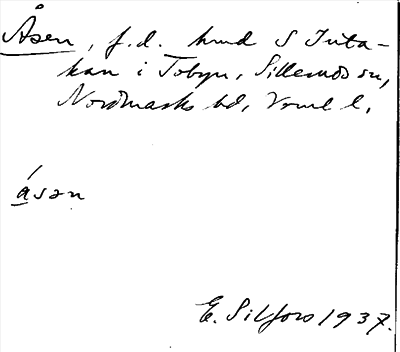 Åsen, f.d. hmd S Juta-
kan i Tobyn, Silleruds sn,
Nordmarks hd, Vrml l.
åsən
E. Silfors 1937.